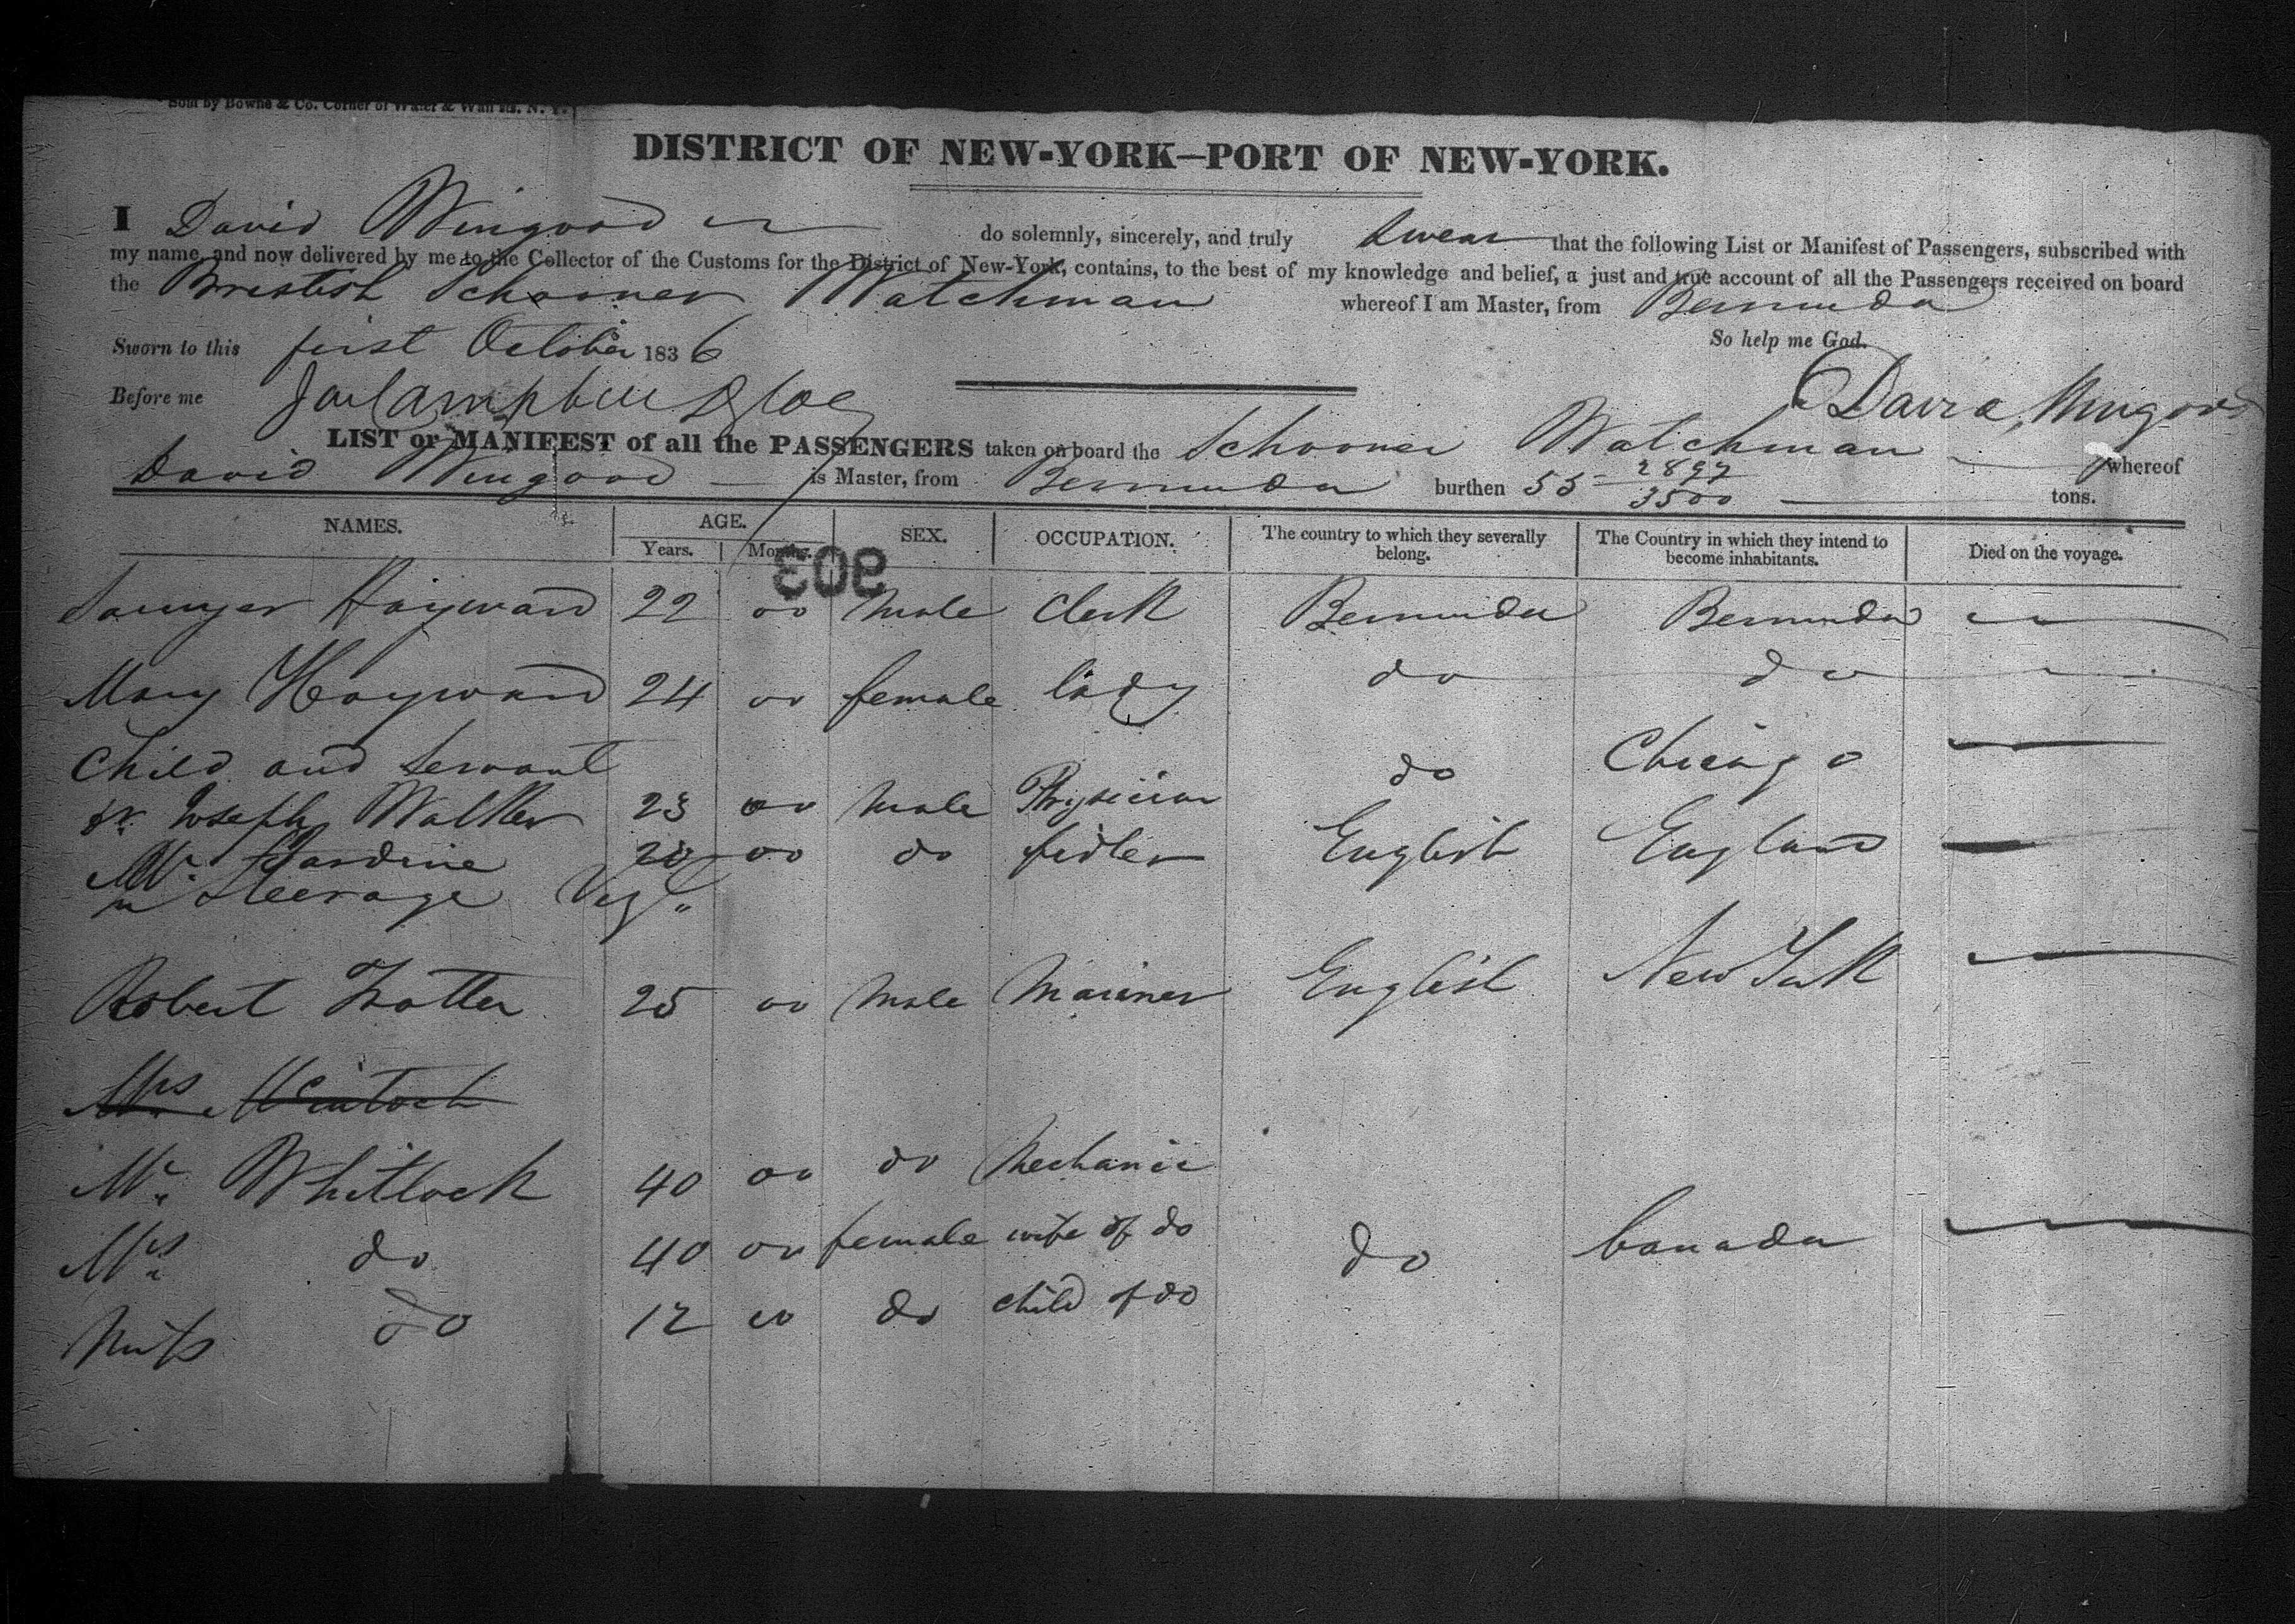 Sold by Bowne & Co. Corner of Water & Wall sts. N. Y.
DISTRICT OF NEW-YORK—PORT OF NEW-YORK.
I David Wingood do solemnly, sincerely, and truly swear that the following List or Manifest of Passengers, subscribed with
my name, and now delivered by me to the Collector of the Customs for the District of New-York, contains, to the best of my knowledge and belief, a just and true account of all the Passengers received on board
the Brestish Schooner Watchman whereof I am Master, from Bermuda
Sworn to this first October 1836 So help me God.
Before me Campbell David Wingood
LIST or MANIFEST of all the PASSENGERS taken on board the Schooner Watchman whereof
David Wingood is Master, from Bermuda burthen 55 2897/3500 tons.
NAMES. AGE. SEX. OCCUPATION. The country to which they severally belong. The Country in which they intend to become inhabitants. Died on the voyage.
Years. Months.
903
Hayward 22 00 Male Clerk Bermuda Bermuda
Mary Hayward 24 00 female lady do do
Child and Servant
Dr. Joseph Walker 23 00 Male Physician do Chicago
Mr. Jardine 20 00 do fidler English England
in Steerage Viz
Robert Trotter 25 00 Male Mariner English New York
Mrs McIntoch
Mr. Whitlock 40 00 do Mechanic
Mrs do 40 00 female wife of do do Canada
Miss do 12 00 do child of do